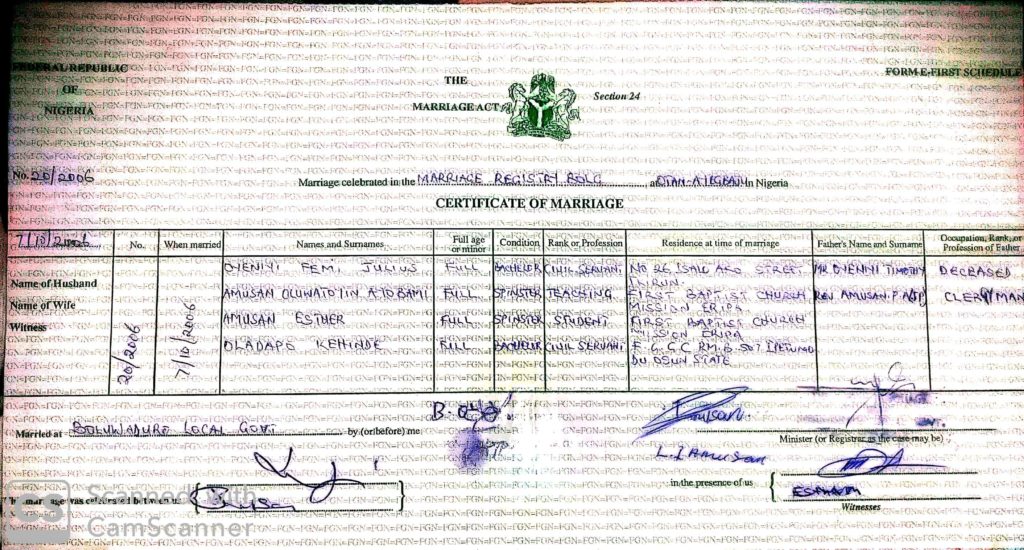 FEDERAL REPUBLIC
OF
NIGERIA
THE
MARRIAGE ACT
Section 24
FORM E-FIRST SCHEDULE
No. 20/2006
Marriage celebrated in the MARRIAGE REGISTRY BOLG at OTAN-AIYEGBAJU in Nigeria
CERTIFICATE OF MARRIAGE
7/10/2006
No. When married Names and Surnames Full age or minor Condition Rank or Profession Residence at time of marriage Father's Name and Surname Occupation, Rank, or Profession of Father
20/2006
7/10/2006
Name of Husband OYENIYI FEMI JULIUS FULL BACHELOR CIVIL SERVANT NO 26, STREET MR OYENIYI TIMOTHY DECEASED
Name of Wife AMUSAN FULL SPINSTER TEACHING FIRST BAPTIST CHURCH MISSION ERIPA REV AMUSAN. P. CLERGYMAN
Witness AMUSAN ESTHER FULL SPINSTER STUDENT FIRST BAPTIST CHURCH MISSION ERIPA
OLADAPO KEHINDE FULL BACHELOR CIVIL SERVANT F.G.G.C P.M.B. OSUN STATE
Married at BOLUWADURO LOCAL GOVT by (or before) me
Minister (or Registrar as the case may be)
L.I AMUSAN
This marriage was celebrated between us
in the presence of us
Witnesses
Scanned with
CS CamScanner